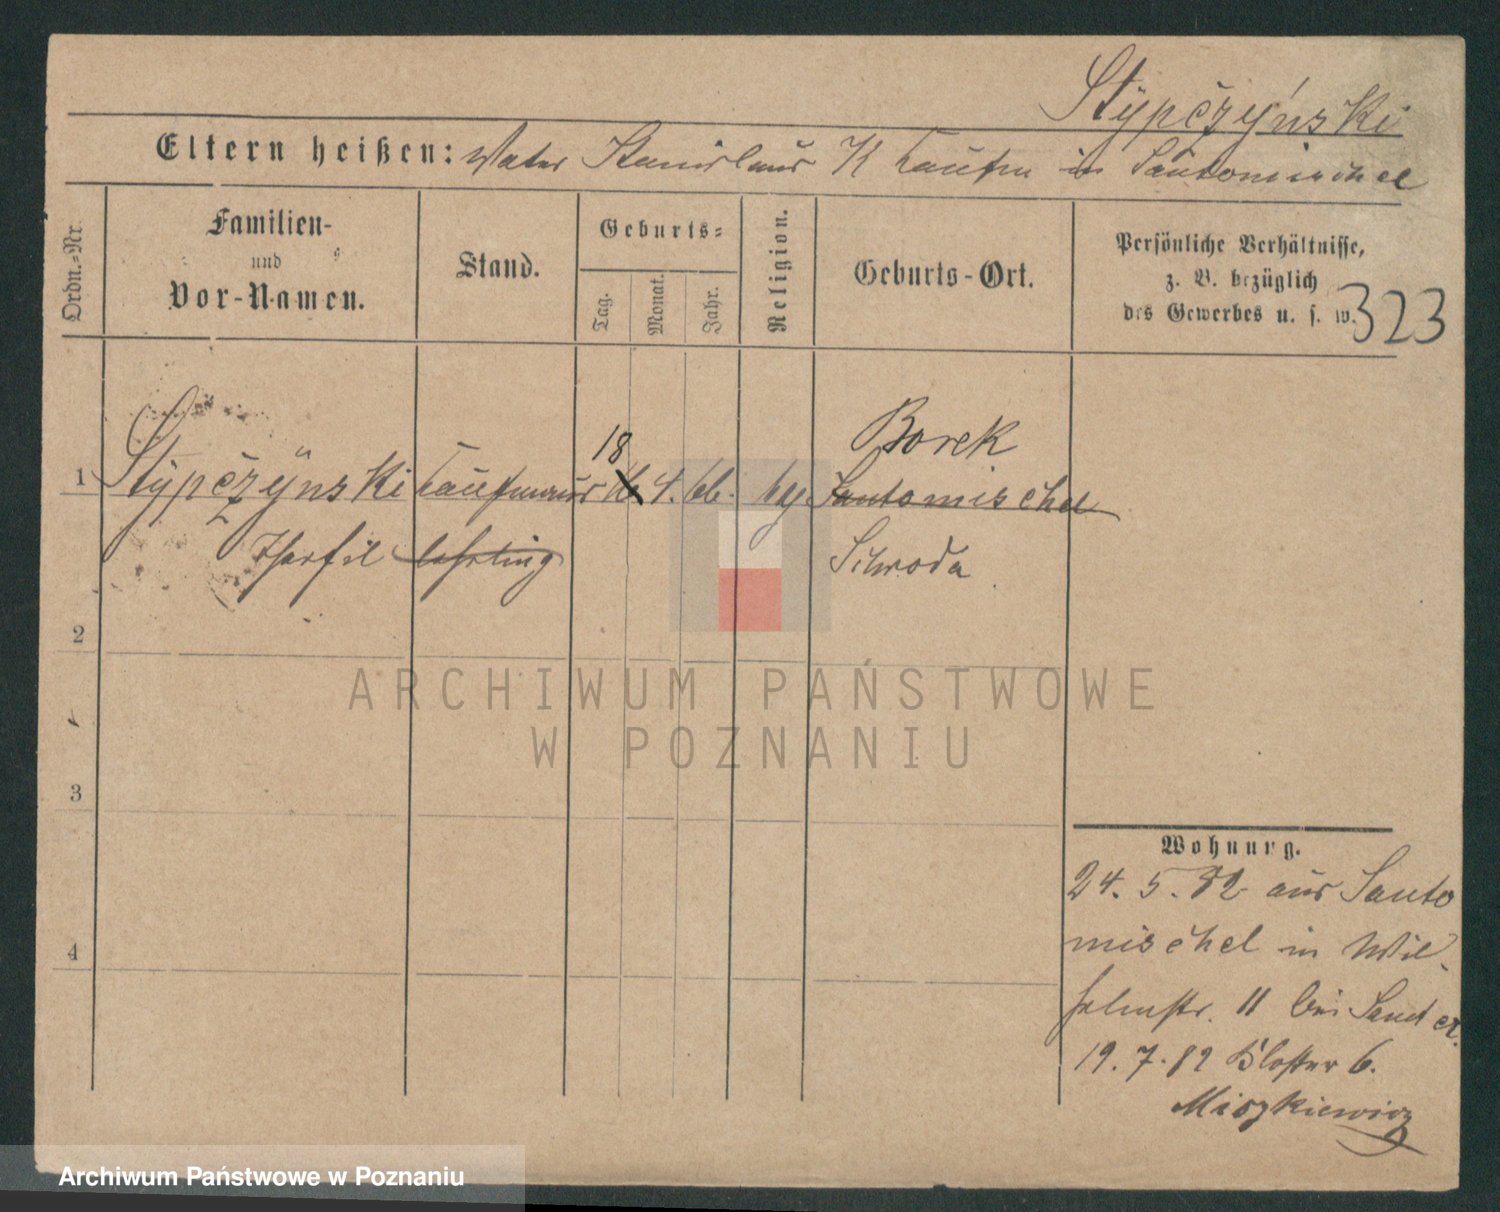 Stypczyński
Eltern heißen: Vater Stanislaus Kaufm in Santomischel
Ordn.-Nr.
Familien-
und
Vor-Namen.
Stand.
Geburts-
Tag.
Monat.
Jahr.
Religion.
Geburts-Ort.
Persönliche Verhältnisse,
z. B. bezüglich
des Gewerbes u. s. w.
323
18
Borek
1 Stypczynski Kaufmanns 4. 66. Santomischel
Theofil lehrling
Schroda
2
3
4
ARCHIWUM PAŃSTWOWE
W POZNANIU
Wohnung.
24. 5. 82 aus Santo
mischel in Wil
helmstr. 11 bei
19. 7. 82 Kloster 6.
Miszkiewicz
Archiwum Państwowe w Poznaniu